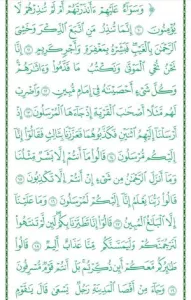 ﴿ وَسَوَآءٌ عَلَيْهِمْ ءَأَنذَرْتَهُمْ أَمْ لَمْ تُنذِرْهُمْ لَا
يُؤْمِنُونَ ۝١٠ إِنَّمَا تُنذِرُ مَنِ ٱتَّبَعَ ٱلذِّكْرَ وَخَشِىَ
ٱلرَّحْمَٰنَ بِٱلْغَيْبِ فَبَشِّرْهُ بِمَغْفِرَةٍ وَأَجْرٍ كَرِيمٍ ۝١١ إِنَّا
نَحْنُ نُحْىِ ٱلْمَوْتَىٰ وَنَكْتُبُ مَا قَدَّمُوا۟ وَءَاثَٰرَهُمْ
وَكُلَّ شَىْءٍ أَحْصَيْنَٰهُ فِىٓ إِمَامٍ مُّبِينٍ ۝١٢ وَٱضْرِبْ
لَهُم مَّثَلًا أَصْحَٰبَ ٱلْقَرْيَةِ إِذْ جَآءَهَا ٱلْمُرْسَلُونَ ۝١٣ إِذْ
أَرْسَلْنَآ إِلَيْهِمُ ٱثْنَيْنِ فَكَذَّبُوهُمَا فَعَزَّزْنَا بِثَالِثٍ فَقَالُوٓا۟ إِنَّآ
إِلَيْكُم مُّرْسَلُونَ ۝١٤ قَالُوا۟ مَآ أَنتُمْ إِلَّا بَشَرٌ مِّثْلُنَا
وَمَآ أَنزَلَ ٱلرَّحْمَٰنُ مِن شَىْءٍ إِنْ أَنتُمْ إِلَّا تَكْذِبُونَ ۝١٥
قَالُوا۟ رَبُّنَا يَعْلَمُ إِنَّآ إِلَيْكُمْ لَمُرْسَلُونَ ۝١٦ وَمَا عَلَيْنَآ
إِلَّا ٱلْبَلَٰغُ ٱلْمُبِينُ ۝١٧ قَالُوٓا۟ إِنَّا تَطَيَّرْنَا بِكُمْ لَئِن لَّمْ تَنتَهُوا۟
لَنَرْجُمَنَّكُمْ وَلَيَمَسَّنَّكُم مِّنَّا عَذَابٌ أَلِيمٌ ۝١٨ قَالُوا۟
طَٰٓئِرُكُم مَّعَكُمْ أَئِن ذُكِّرْتُم بَلْ أَنتُمْ قَوْمٌ مُّسْرِفُونَ
۝١٩ وَجَآءَ مِنْ أَقْصَا ٱلْمَدِينَةِ رَجُلٌ يَسْعَىٰ قَالَ يَٰقَوْمِ